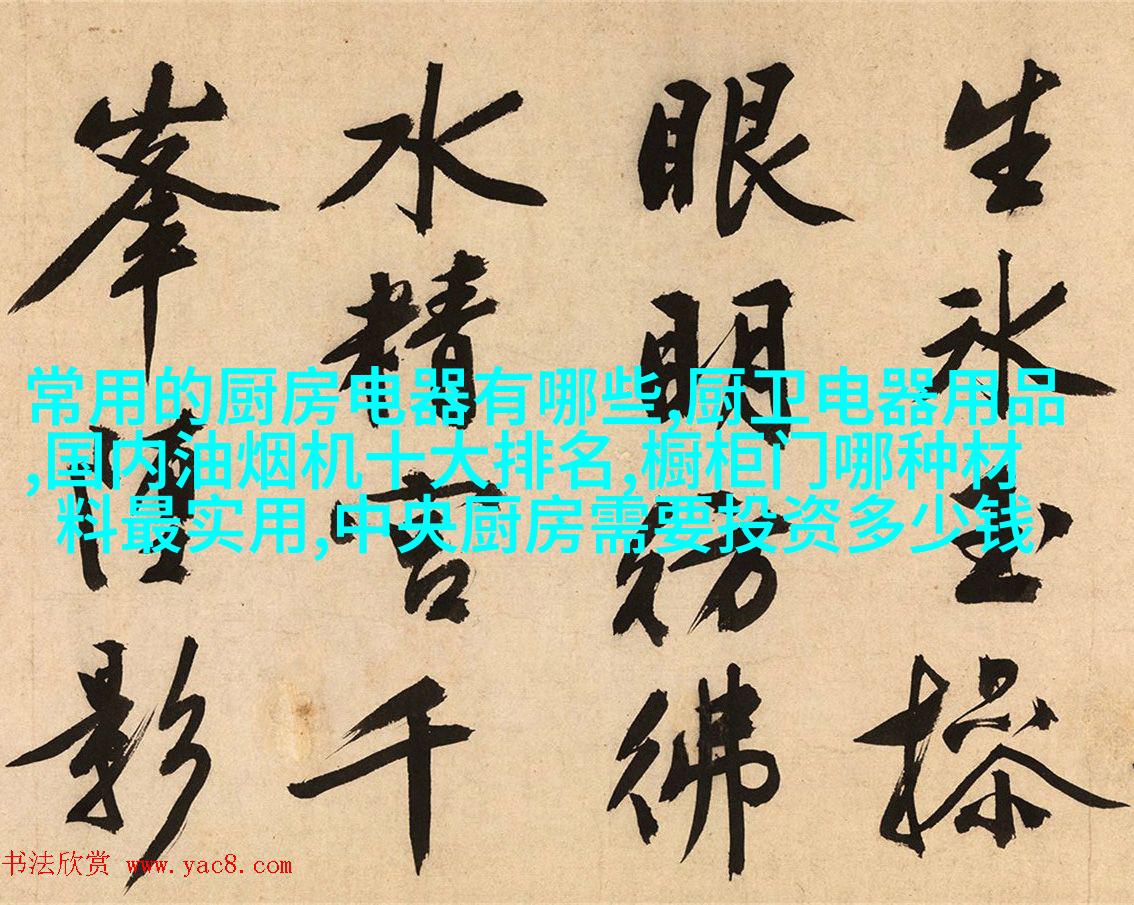 生冰玉操
眼明彷彿
水精宮千
峯影
常用的厨房电器有哪些,厨卫电器用品
,国内油烟机十大排名,橱柜门哪种材
料最实用,中央厨房需要投资多少钱
书法欣赏 www.yac8.com